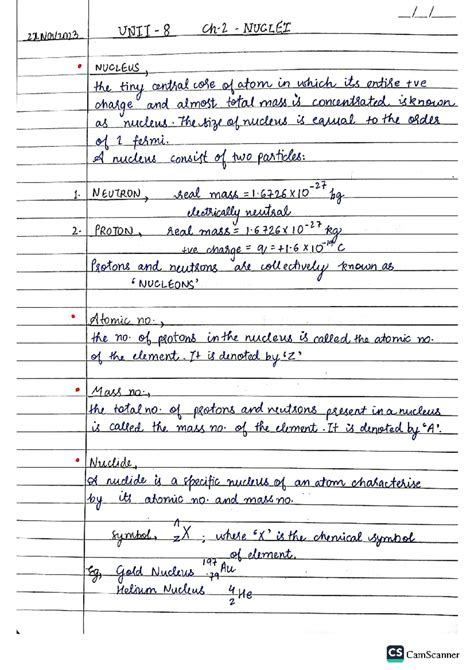 __/__/__
22/Nov/2023 UNIT - 8 Ch-2 - NUCLEI
• NUCLEUS,
the tiny central core of atom in which its entire +ve
charge and almost total mass is concentrated is known
as nucleus. The size of nucleus is equal to the order
of 1 fermi.
A nucleus consist of two particles:
1. NEUTRON, real mass = 1.6726 x 10⁻²⁷ kg
electrically neutral
2. PROTON, real mass = 1.6726 x 10⁻²⁷ kg
+ve charge = q = +1.6 x 10⁻¹⁹ C
Protons and neutrons are collectively known as
'NUCLEONS'
• Atomic no.,
the no. of protons in the nucleus is called the atomic no.
of the element. It is denoted by 'Z'
• Mass no.,
the total no. of protons and neutrons present in a nucleus
is called the mass no. of the element. It is denoted by 'A'.
• Nuclide,
A nuclide is a specific nucleus of an atom characterise
by its atomic no. and mass no.
Symbol, ᴬ_Z X ; where 'X' is the chemical symbol
of element.
Eg, Gold Nucleus ¹⁹⁷₇₉Au
Helium Nucleus ⁴₂He
CS CamScanner